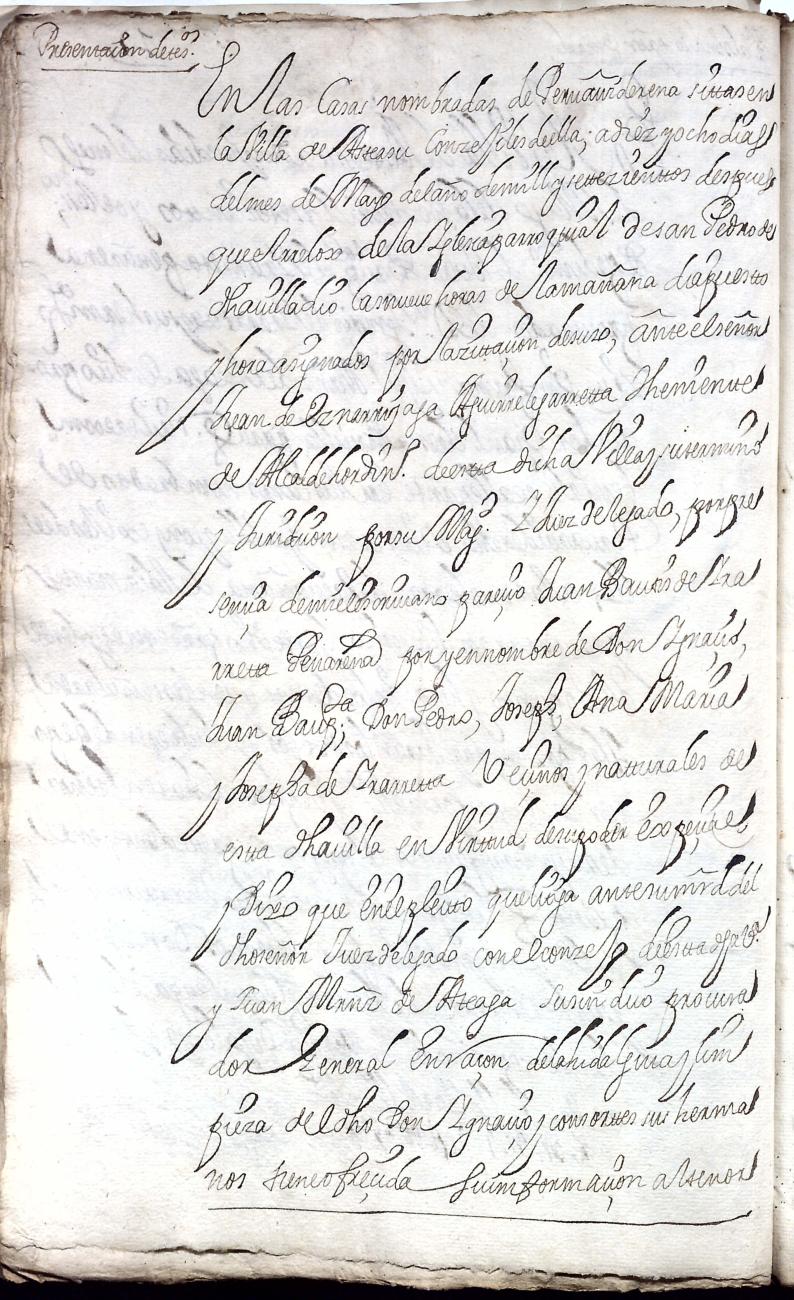 Presentacion de tes.os
En las Casas nombradas de sittas en
la Villa de Asteasu Conzejiles de ella, a diez y ocho dias
del mes de Mayo del año de mill y settezienttos despues
que el rrelox de la Iglesia parroquial de san Pedro de
dha villa dio las nueve horas de la mañana dia puestto
y hora asignados por la zittaçion de suso, ante el señor
Juan de Eznarrijaga Aguirrelejarretta theniente
de Alcalde hordin.º de esta dicha Villa y su termino
y Juridiçion por su Mag. Y Juez delegado, por pre
sençia de mi el escrivano pareçio Juan Baup.ta de Yra
rretta por y en nombre de Don Ygnaçio,
Juan Baup.ta, Don Pedro, Joseph, Ana Maria
y Josepha de Yrarretta Veçinos y natturales de
esta dha villa en Virttud de su poder Expeçial,
y Dixo que en el pleitto que litiga ante su mrd del
dho señor Juez delegado con el conzejo de esta dha V.ª
y Juan Mrñz de Atteaga su sindico procura
dor General En raçon de la hidalguia y lim
pieza del dho Don Ygnaçio y consorttes sus herma
nos tiene ofreçida su informaçion al tenor